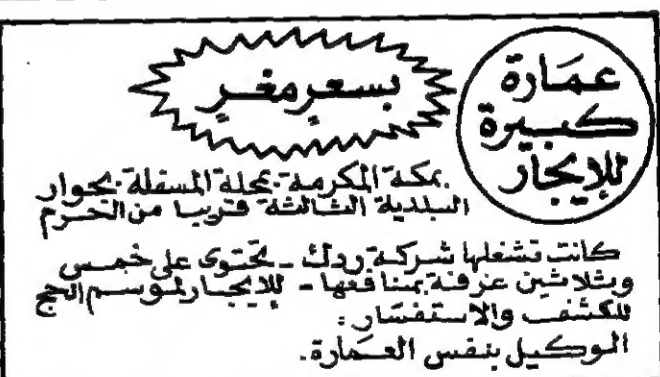 عمارة
كبيرة
للإيجار
بسعرٍ مغرٍ
بمكة المكرمة - محلة المسفلة - بجوار
البلدية الثالثة قريبا من الحرم
كانت تشغلها شركة ردك - تحتوى على خمس
وثلاثين غرفة بمنافعها - للايجار لموسم الحج
للكشف والاستفسار :
الوكيل بنفس العمارة .